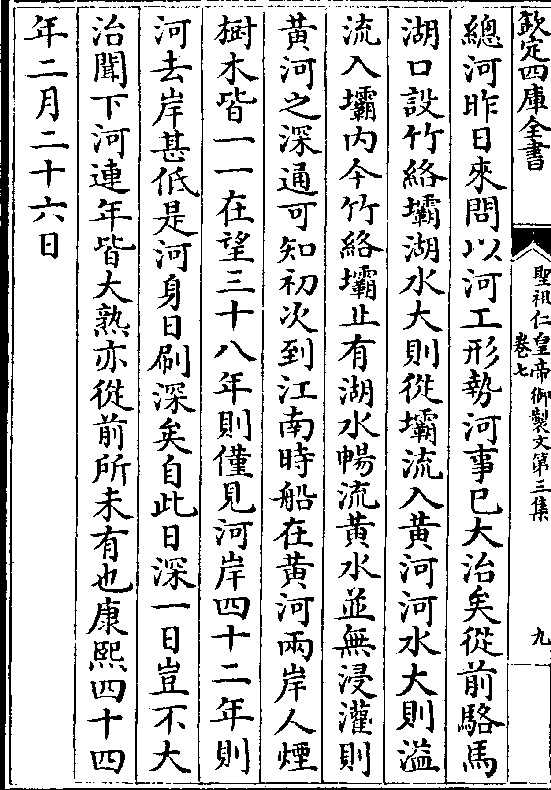 欽定四庫全書
聖祖仁皇帝御製文第三集
卷七
九
總河昨日來問以河工形勢河事已大治矣從前駱馬
湖口設竹絡壩湖水大則從壩流入黃河河水大則溢
流入壩內今竹絡壩止有湖水暢流黃水並無浸灌則
黃河之深通可知初次到江南時船在黃河兩岸人煙
樹木皆一一在望三十八年則僅見河岸四十二年則
河去岸甚低是河身日刷深矣自此日深一日豈不大
治聞下河連年皆大熟亦從前所未有也康熙四十四
年二月二十六日